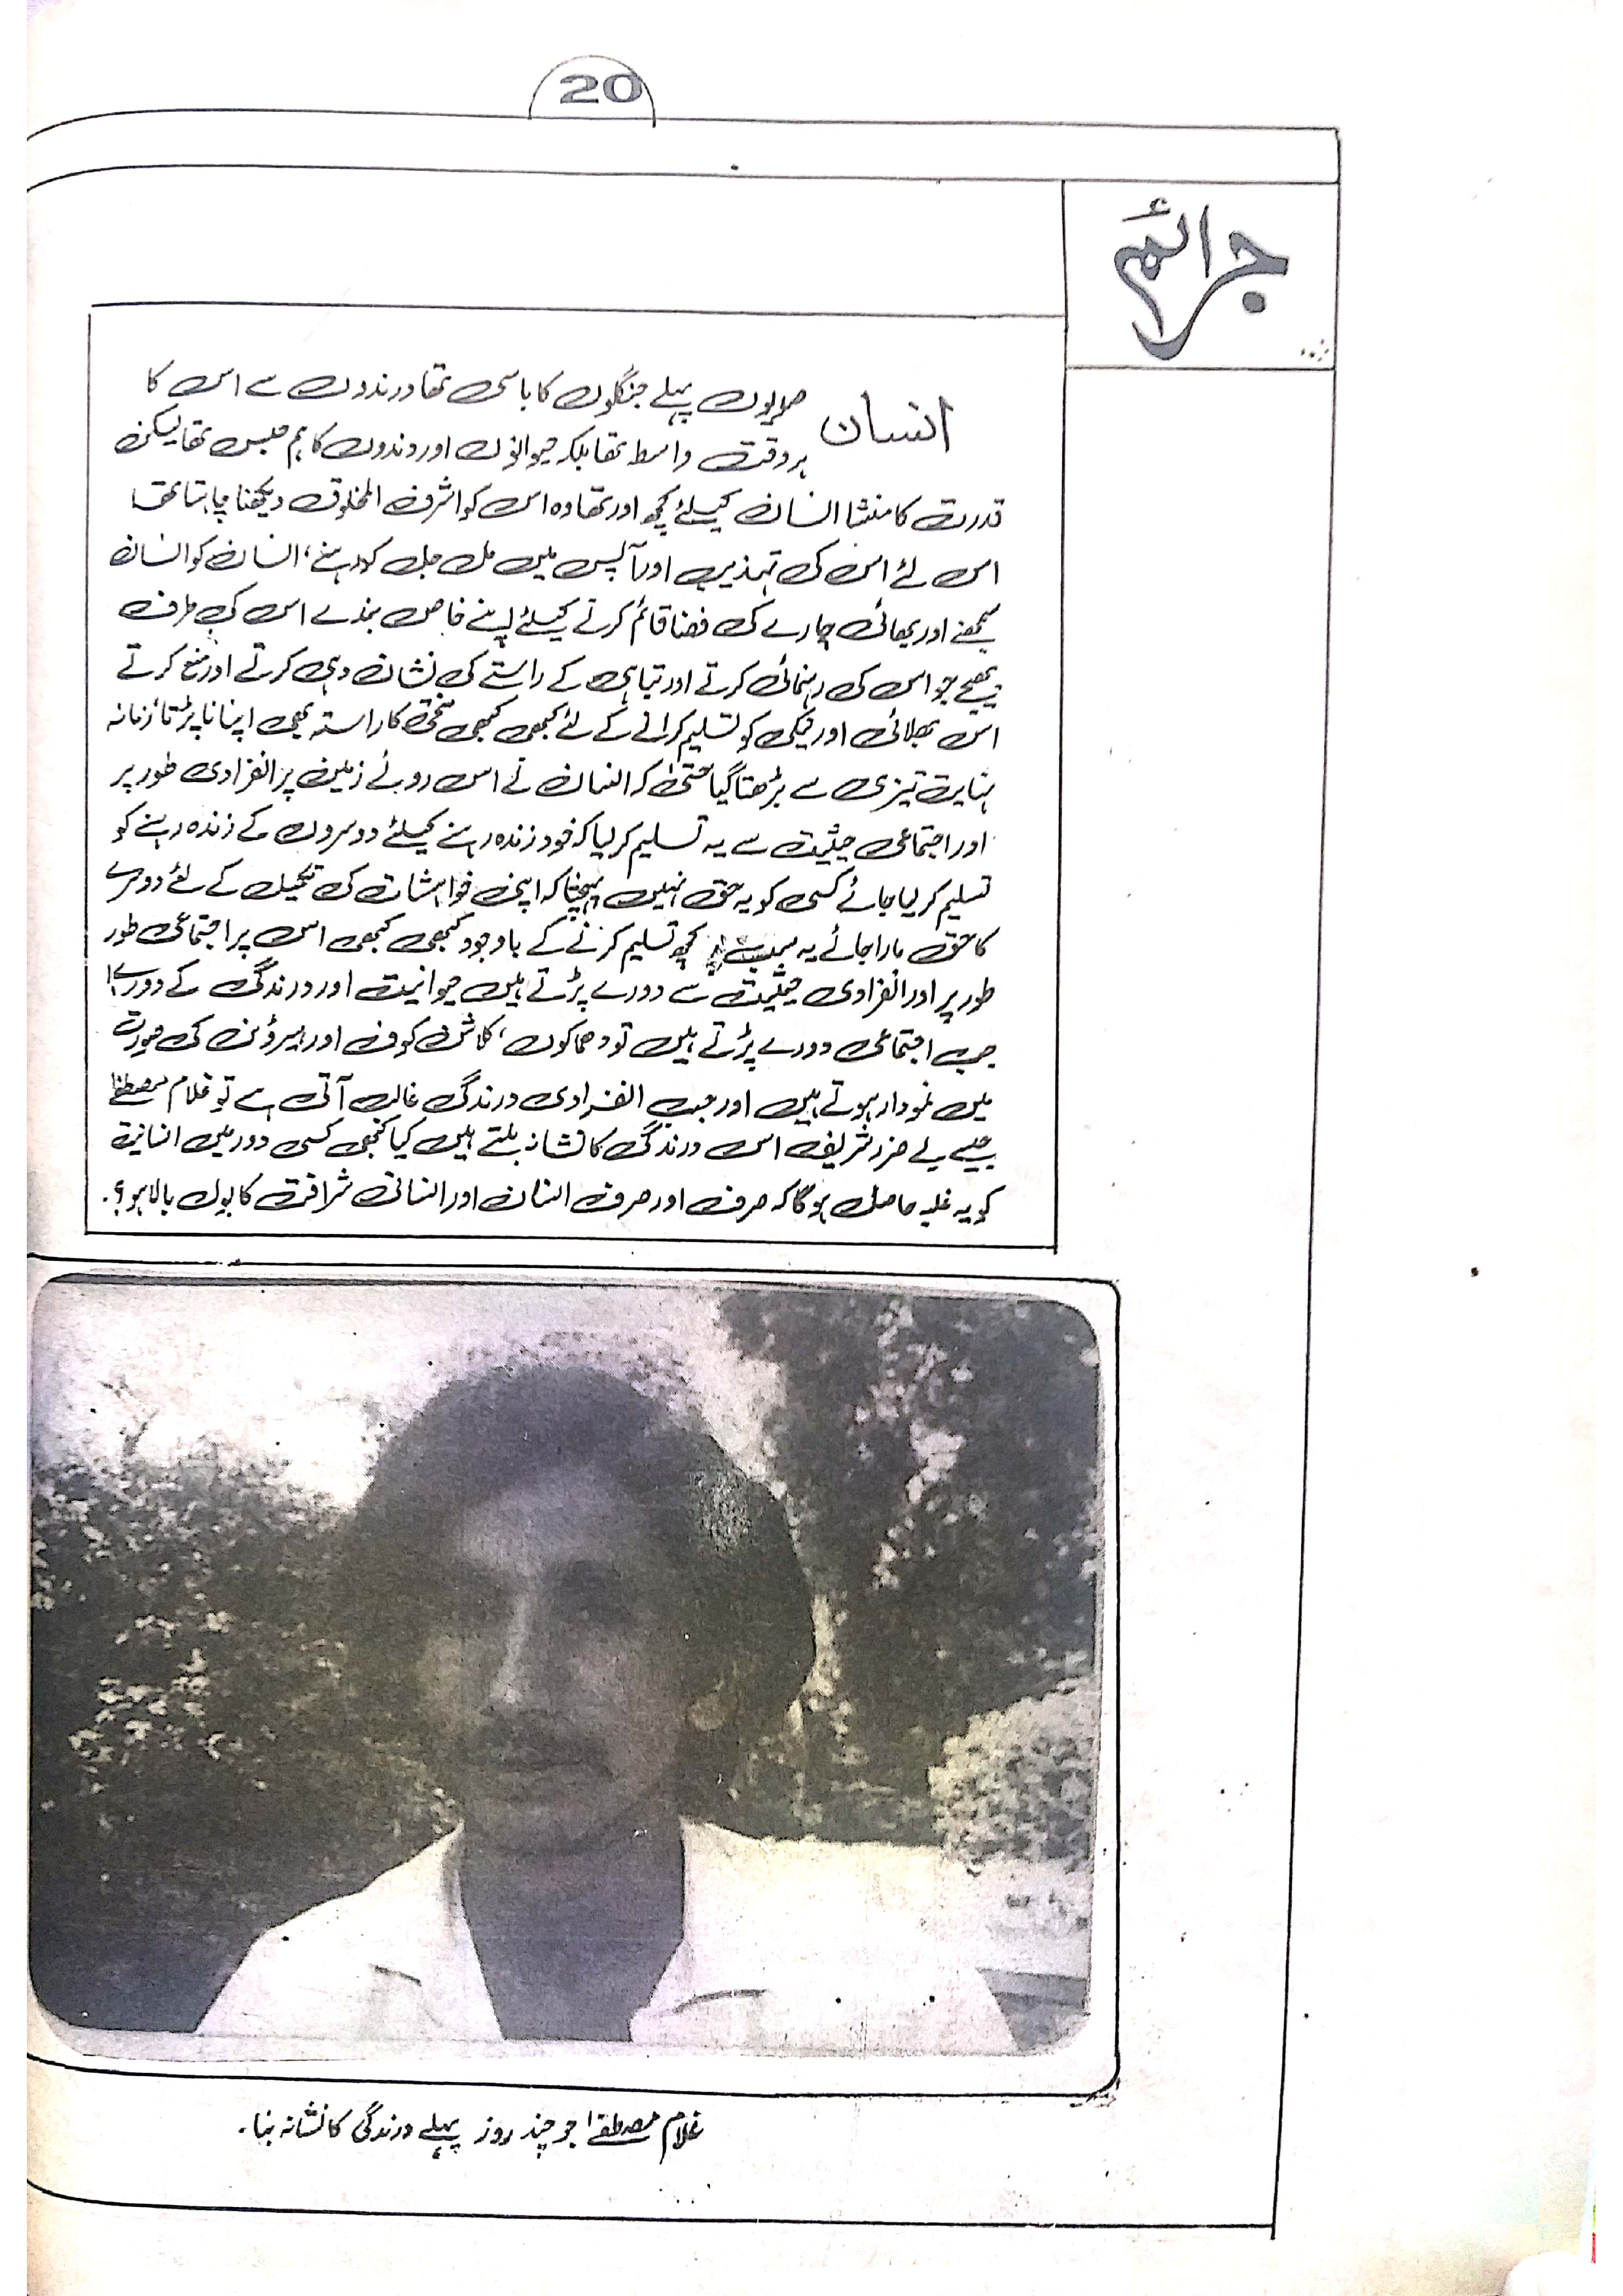 20
جرائم
انسان صدیوں پہلے جنگلوں کا باسی تھا درندوں سے اس کا
ہر وقت واسطہ تھا بلکہ حیوانوں اور درندوں کا ہم جنس تھا لیکن
قدرت کا منشا انسان کیلئے کچھ اور تھا وہ اس کو اشرف المخلوق دیکھنا چاہتا تھا
اس لئے اس کی تہذیب اور آپس میں مل جل کر رہنے، انسان کو انسان
سمجھنے اور بھائی چارے کی فضا قائم کرنے کیلئے اپنے خاص بندے اس کی طرف
بھیجے جو اس کی رہنمائی کرتے اور تباہی کے راستے کی نشان دہی کرتے اور منع کرتے
اس بھلائی اور نیکی کو تسلیم کرانے کے لئے کبھی کبھی سختی کا راستہ بھی اپنانا پڑتا زمانہ
نہایت تیزی سے بڑھتا گیا حتیٰ کہ انسان نے اس روئے زمین پر انفرادی طور پر
اور اجتماعی حیثیت سے یہ تسلیم کر لیا کہ خود زندہ رہنے کیلئے دوسروں کے زندہ رہنے کو
تسلیم کر لیا جائے کسی کو یہ حق نہیں پہنچتا کہ اپنی خواہشات کی تکمیل کے لئے دوسرے
کا حق مارا جائے یہ سب کچھ تسلیم کرنے کے باوجود کبھی کبھی اس پر اجتماعی طور
طور پر اور انفرادی حیثیت سے دورے پڑتے ہیں حیوانیت اور درندگی کے دورے!
جب اجتماعی دورے پڑتے ہیں تو دھماکوں، کلاشن کوف اور ہیروئن کی صورت
میں نمودار ہوتے ہیں اور جب انفرادی درندگی غالب آتی ہے تو غلام مصطفےٰ
جیسے بے ضرر شریف اس درندگی کا نشانہ بنتے ہیں کیا کبھی کسی دور میں انسانیت
کو یہ غلبہ حاصل ہوگا کہ صرف اور صرف انسان اور انسانی شرافت کا بول بالا ہو؟.
غلام مصطفےٰ جو چند روز پہلے درندگی کا نشانہ بنا.